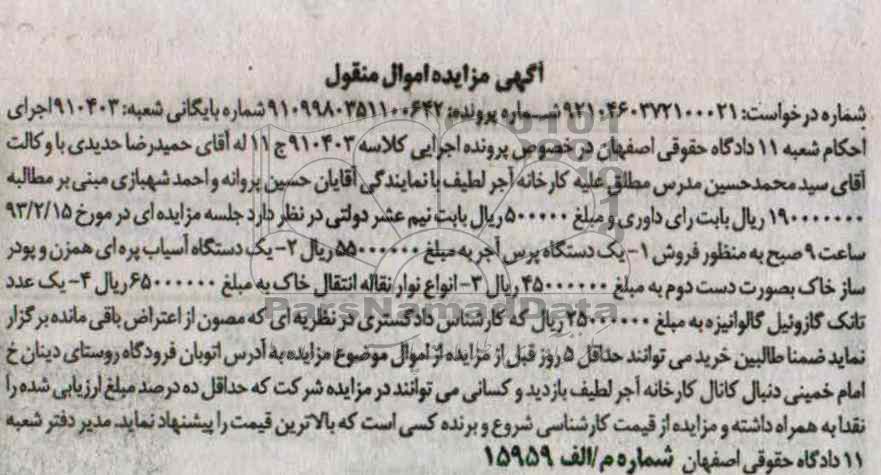 آگهی مزایده اموال منقول
شماره درخواست: ۹۲۱۰۴۶۰۳۷۲۱۰۰۰۲۱ شماره پرونده: ۹۱۰۹۹۸۰۳۵۱۱۰۰۶۴۲ شماره بایگانی شعبه: ۹۱۰۴۰۳ اجرای
احکام شعبه ۱۱ دادگاه حقوقی اصفهان در خصوص پرونده اجرایی کلاسه ۹۱۰۴۰۳ ج ۱۱ له آقای حمیدرضا حدیدی با وکالت
آقای سید محمدحسین مدرس مطلق علیه کارخانه آجر لطیف با نمایندگی آقایان حسین پروانه و احمد شهبازی مبنی بر مطالبه
۱۹۰۰۰۰۰۰۰ ریال بابت رای داوری و مبلغ ۵۰۰۰۰۰ ریال بابت نیم عشر دولتی در نظر دارد جلسه مزایده ای در مورخ ۹۳/۲/۱۵
ساعت ۹ صبح به منظور فروش ۱- یک دستگاه پرس آجر به مبلغ ۵۵۰۰۰۰۰۰ ریال ۲- یک دستگاه آسیاب پره ای همزن و پودر
ساز خاک بصورت دست دوم به مبلغ ۴۵۰۰۰۰۰۰ ریال ۳- انواع نوار نقاله انتقال خاک به مبلغ ۶۵۰۰۰۰۰۰ ریال ۴- یک عدد
تانک گازوئیل گالوانیزه به مبلغ ۲۵۰۰۰۰۰۰ ریال که کارشناس دادگستری در نظریه ای که مصون از اعتراض باقی مانده برگزار
نماید ضمنا طالبین خرید می توانند حداقل ۵ روز قبل از مزایده از اموال موضوع مزایده به آدرس اتوبان فرودگاه روستای دینان خ
امام خمینی دنبال کانال کارخانه آجر لطیف بازدید و کسانی می توانند در مزایده شرکت که حداقل ده درصد مبلغ ارزیابی شده را
نقدا به همراه داشته و مزایده از قیمت کارشناسی شروع و برنده کسی است که بالاترین قیمت را پیشنهاد نماید. مدیر دفتر شعبه
۱۱ دادگاه حقوقی اصفهان شماره م/الف ۱۵۹۵۹
ParsNamadData